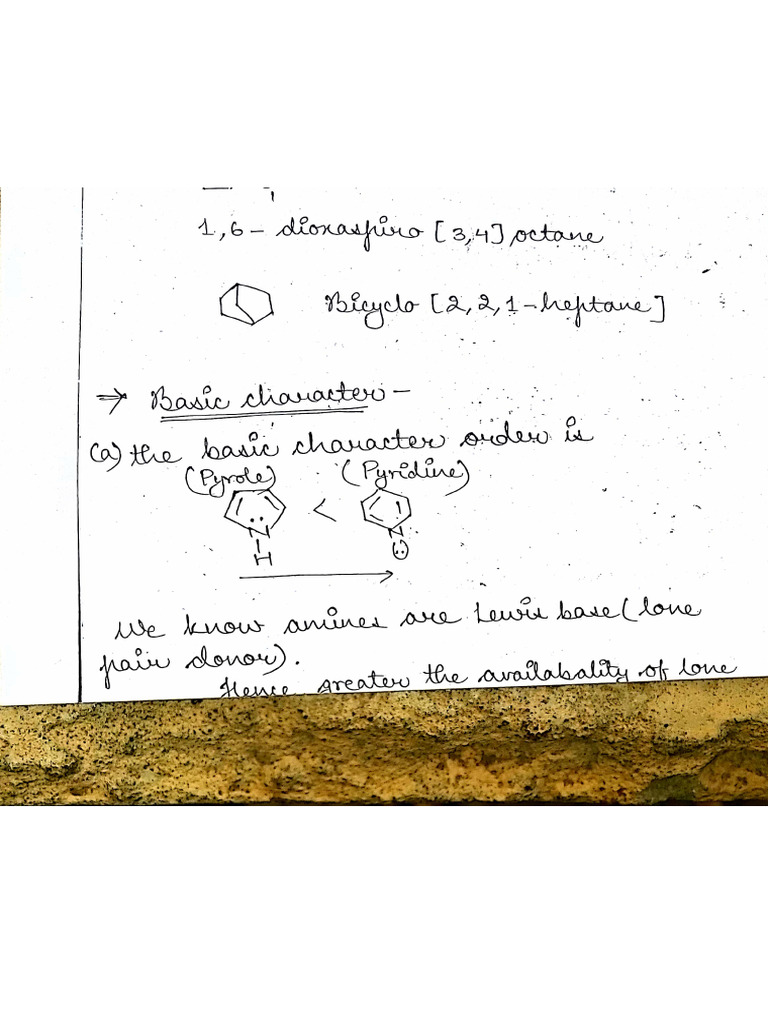 1,6 - dioxaspiro [3,4] octane
Bicyclo [2,2,1-heptane]
→ Basic character -
(a) the basic character order is
(Pyrole) (Pyridine)
<
N N
H
We know amines are Lewis base (lone
pair donor).
Hence greater the availabality of lone